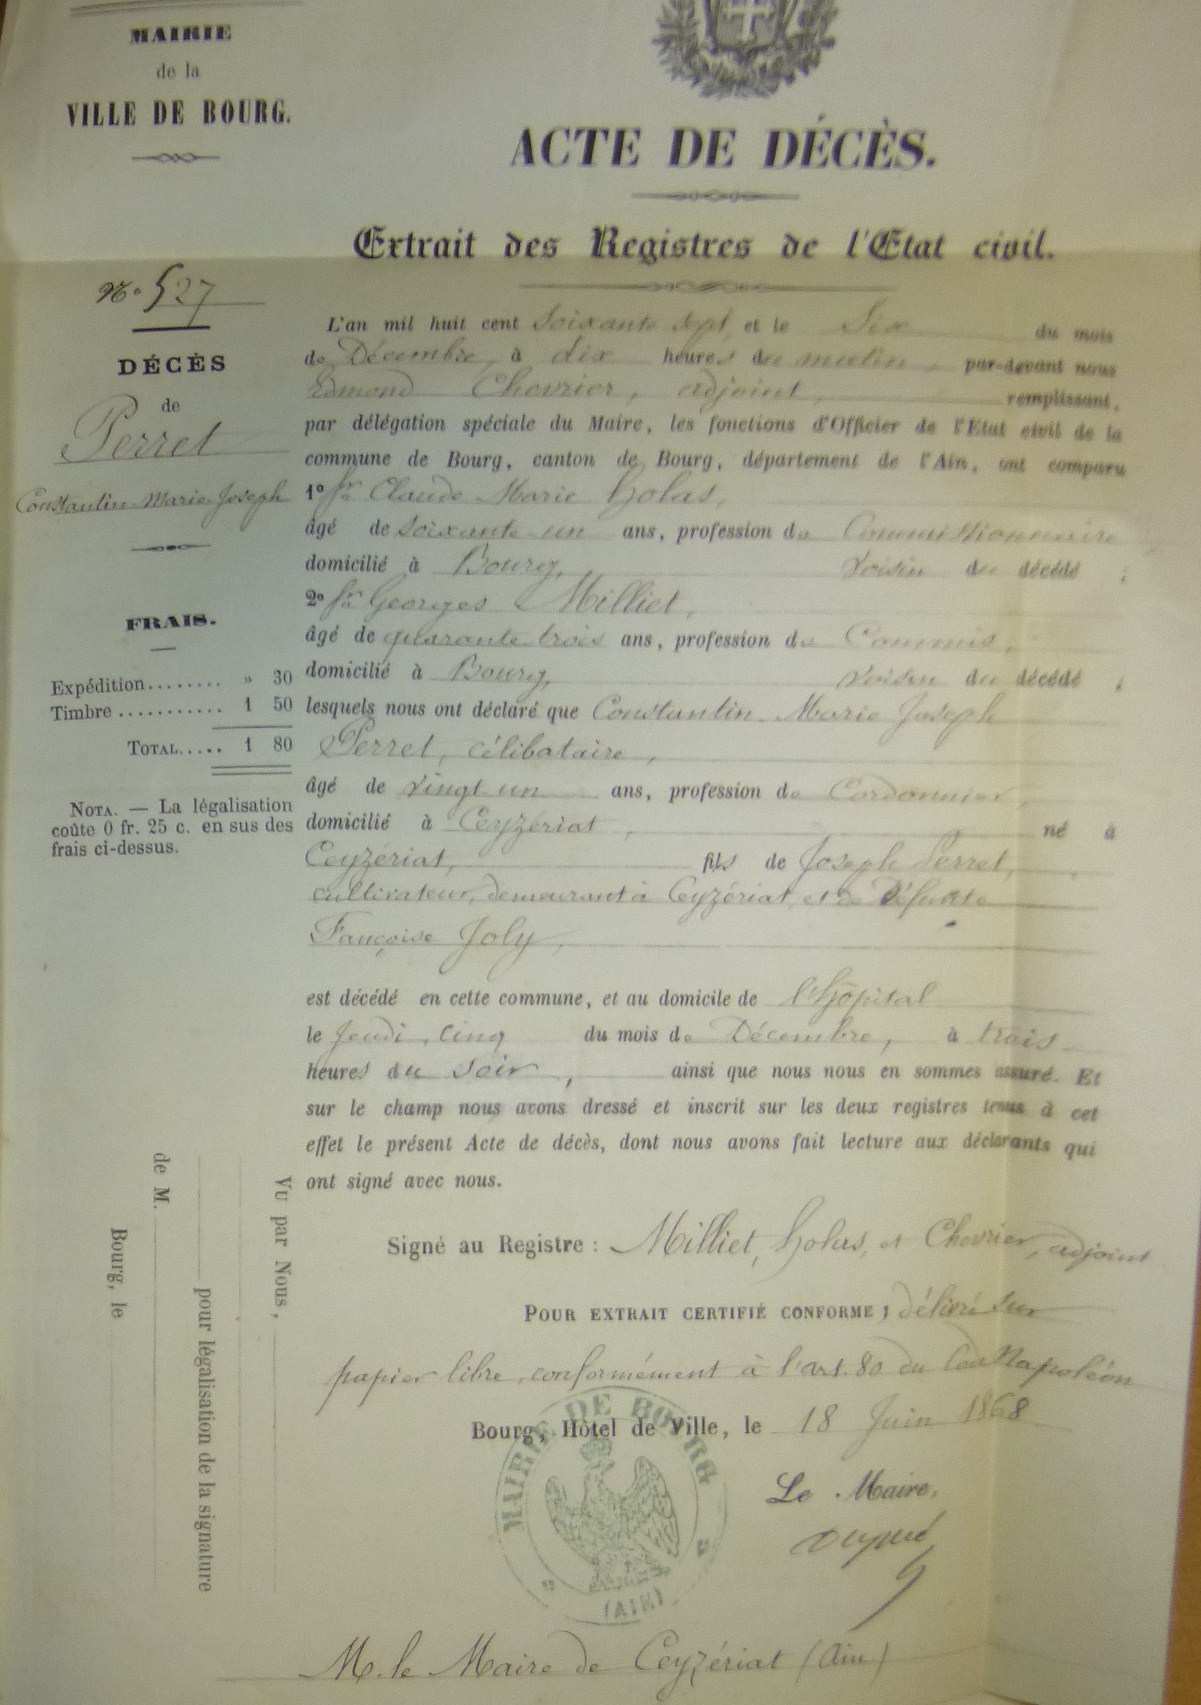 MAIRIE
de la
VILLE DE BOURG.
ACTE DE DÉCÈS.
Extrait des Registres de l'Etat civil.
No 527
DÉCÈS
de
Perret
Constantin Marie Joseph
FRAIS.
Expédition........ » 30
Timbre ........... 1 50
TOTAL..... 1 80
NOTA. — La légalisation
coûte 0 fr. 25 c. en sus des
frais ci-dessus.
L'an mil huit cent soixante sept, et le Six du mois
de Décembre, à dix heures du matin, par-devant nous
Edmond Chevrier, adjoint, remplissant,
par délégation spéciale du Maire, les fonctions d'Officier de l'Etat civil de la
commune de Bourg, canton de Bourg, département de l'Ain, ont comparu
1o Claude Marie
âgé de soixante un ans, profession de Commissionnaire
domicilié à Bourg, voisin du décédé ;
2o Georges Milliet,
âgé de quarante trois ans, profession de Commis,
domicilié à Bourg, voisin du décédé ;
lesquels nous ont déclaré que Constantin Marie Joseph
Perret, célibataire,
âgé de vingt un ans, profession de Cordonnier,
domicilié à Ceyzériat, né à
Ceyzériat, fils de Joseph Perret,
cultivateur, demeurant à Ceyzériat, et de Défunte
Françoise Joly,
est décédé en cette commune, et au domicile de l'hôpital
le Jeudi, cinq du mois de Décembre, à trois
heures du soir, ainsi que nous nous en sommes assuré. Et
sur le champ nous avons dressé et inscrit sur les deux registres tenus à cet
effet le présent Acte de décès, dont nous avons fait lecture aux déclarants qui
ont signé avec nous.
Signé au Registre : Milliet, et Chevrier, adjoint
POUR EXTRAIT CERTIFIÉ CONFORME ; délivré sur
papier libre, conformément à l'art. 80 du Napoléon
Bourg, Hôtel de Ville, le 18 Juin 1868
MAIRIE DE BOURG
(AIN)
Le Maire,
M. le Maire de Ceyzériat (Ain)
Vu par Nous,
pour légalisation de la signature
de M.
Bourg, le